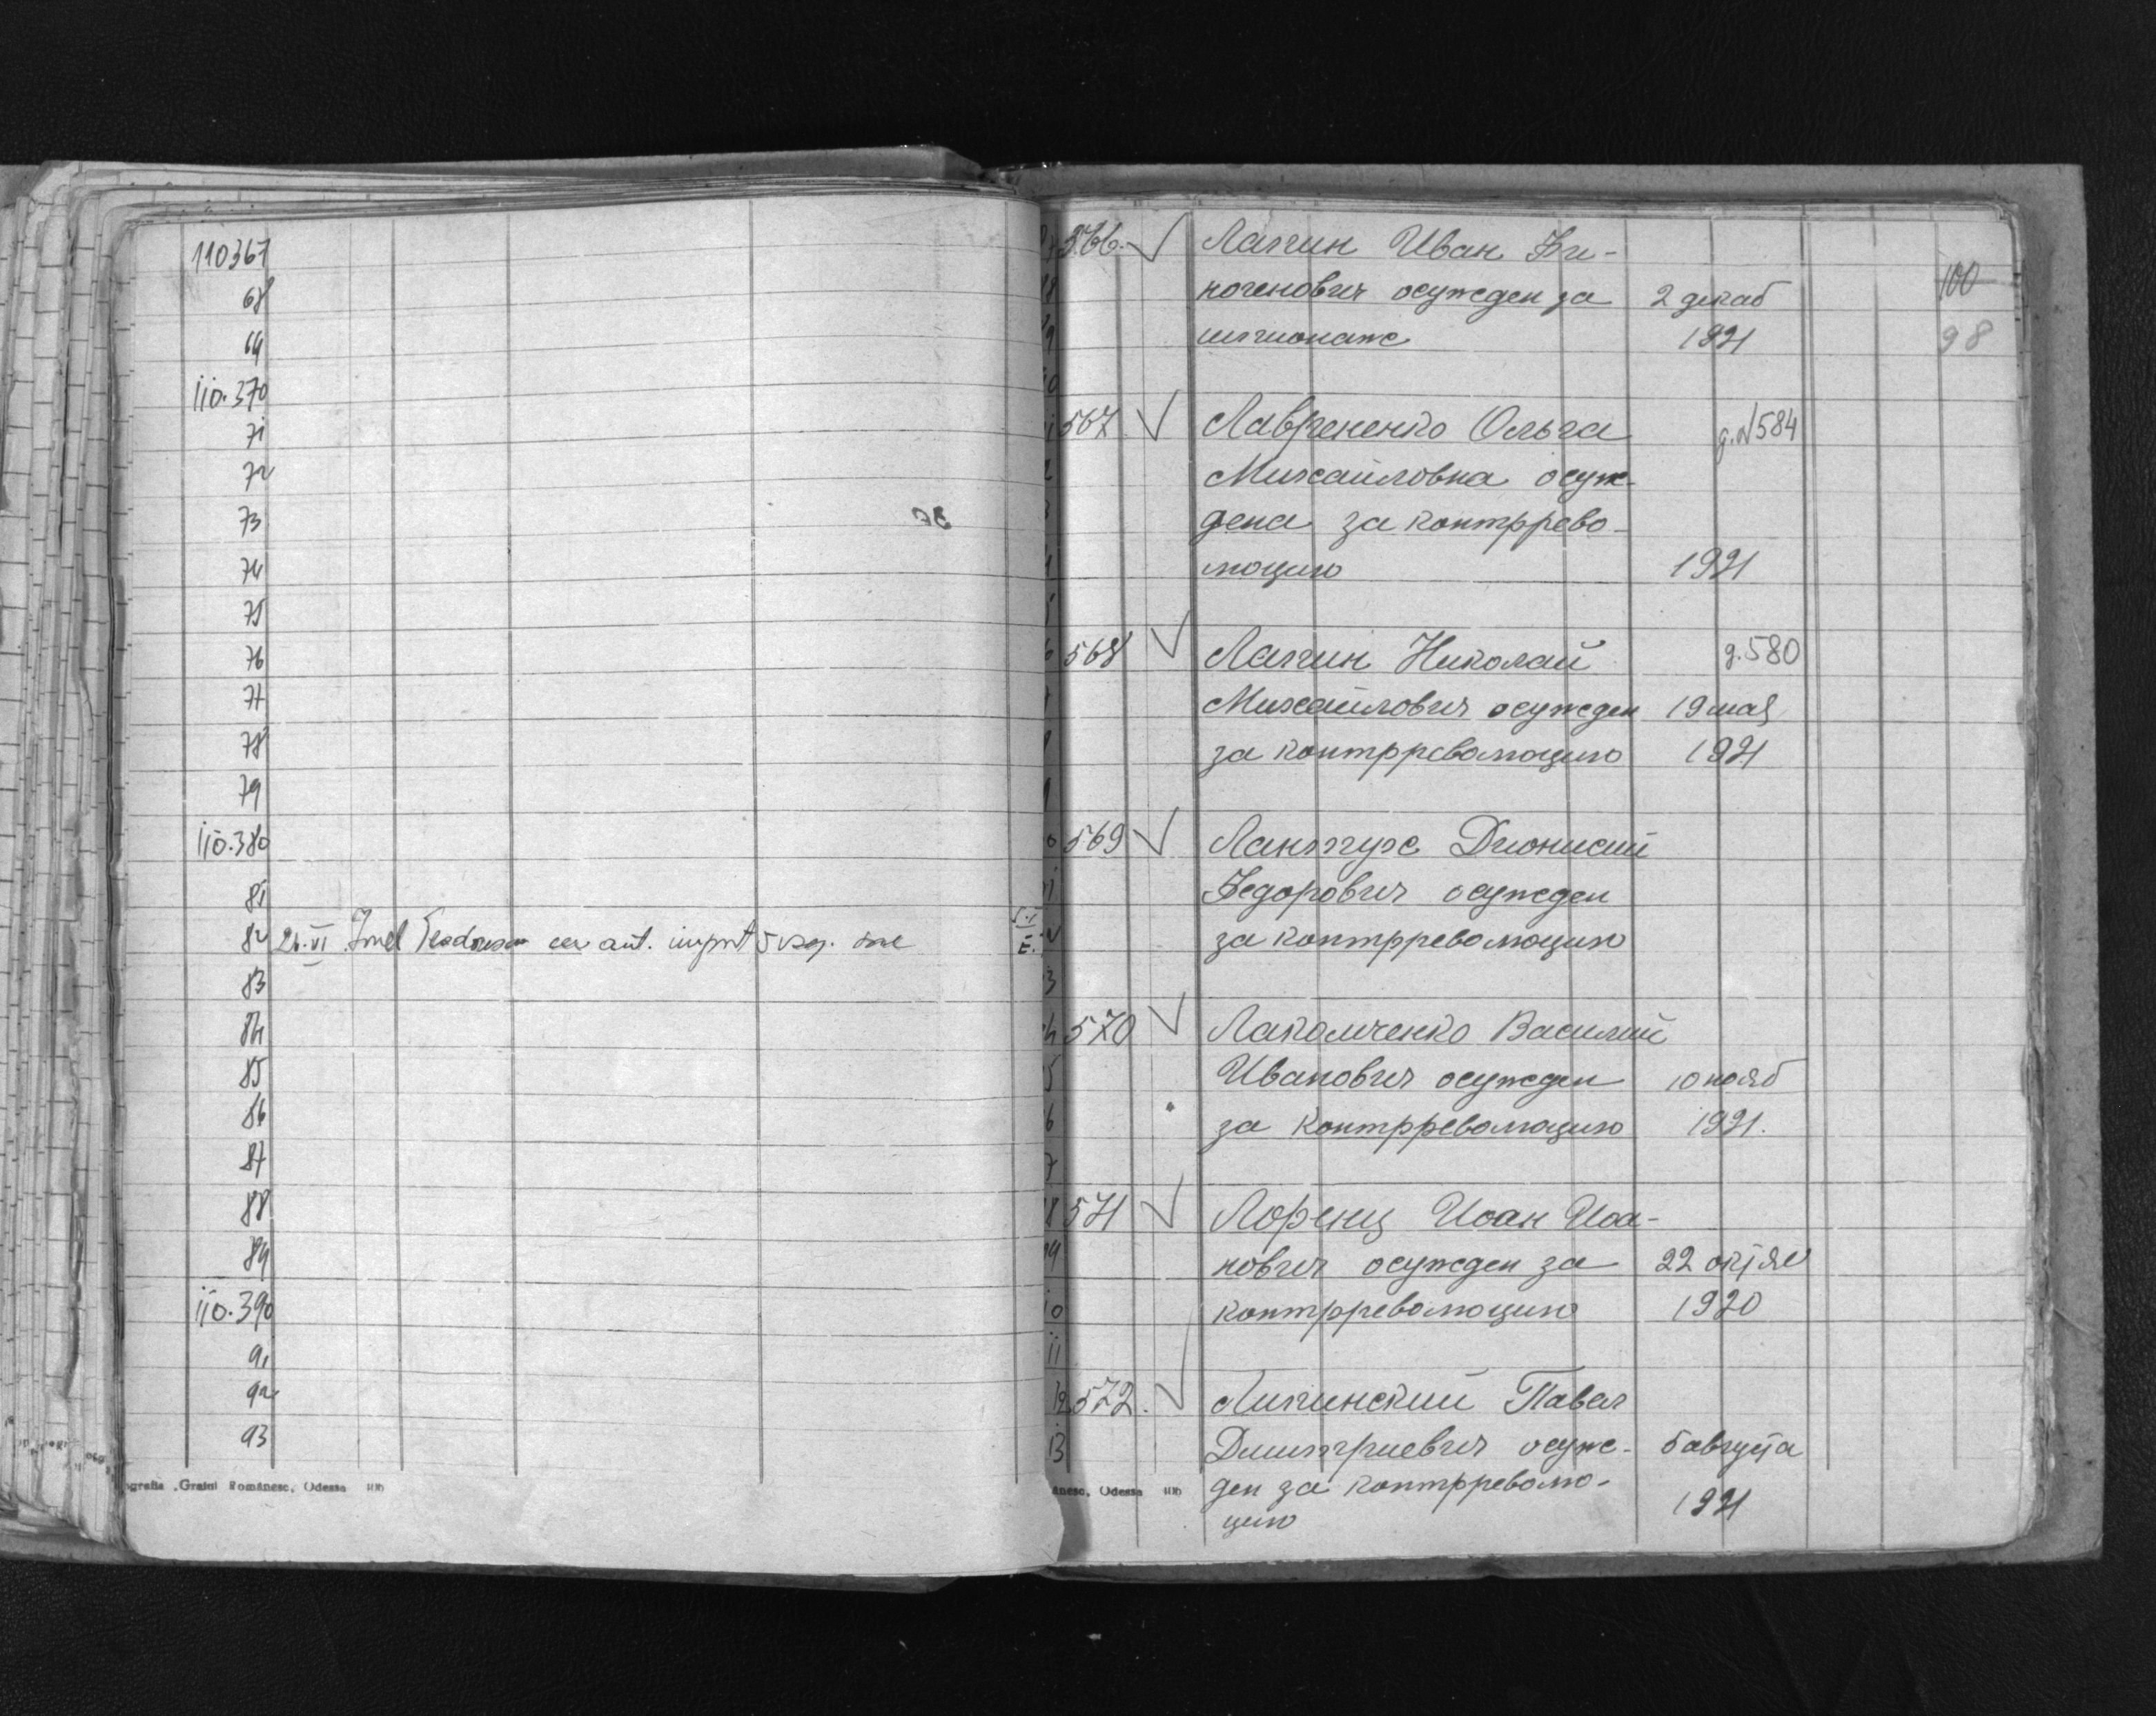 110367
68
69
110.370
71
72
73
74
75
76
77
78
79
110.380
81
82 26.VI aut. import 5 vag.
83
84
85
86
87
88
89
110.390
91
92
93
Graiul Românesc, Odessa
566. Лапин Иван Фи-
ногенович осужден за 2 декаб
шпионаж 1921
100
98
567 Лавриненко Ольга д.№584
Михайловна осуж-
дена за контррево-
люцию 1921
568 Лапин Николай д.580
Михайлович осужден 19 мая
за контрреволюцию 1921
569 Лантух Дионисий
Федорович осужден
за контрреволюцию
570 Лакомченко Василий
Иванович осужден 10 нояб
за контрреволюцию 1921.
571 Лоренц Иоан Иоа-
нович осужден за 22 октяб
контрреволюцию 1920
572. Липинский Павел
Дмитриевич осуж- 5 августа
ден за контрреволю- 1921
цию
Odessa